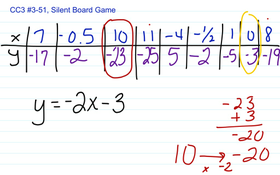 CC3 #3-51, Silent Board Game
x 7 -0.5 10 11 -4 -1/2 1 0 8
y -17 -2 -23 -25 5 -2 -5 -3 -19
y = -2x - 3
-23
+ 3
-20
10 → -20
x -2